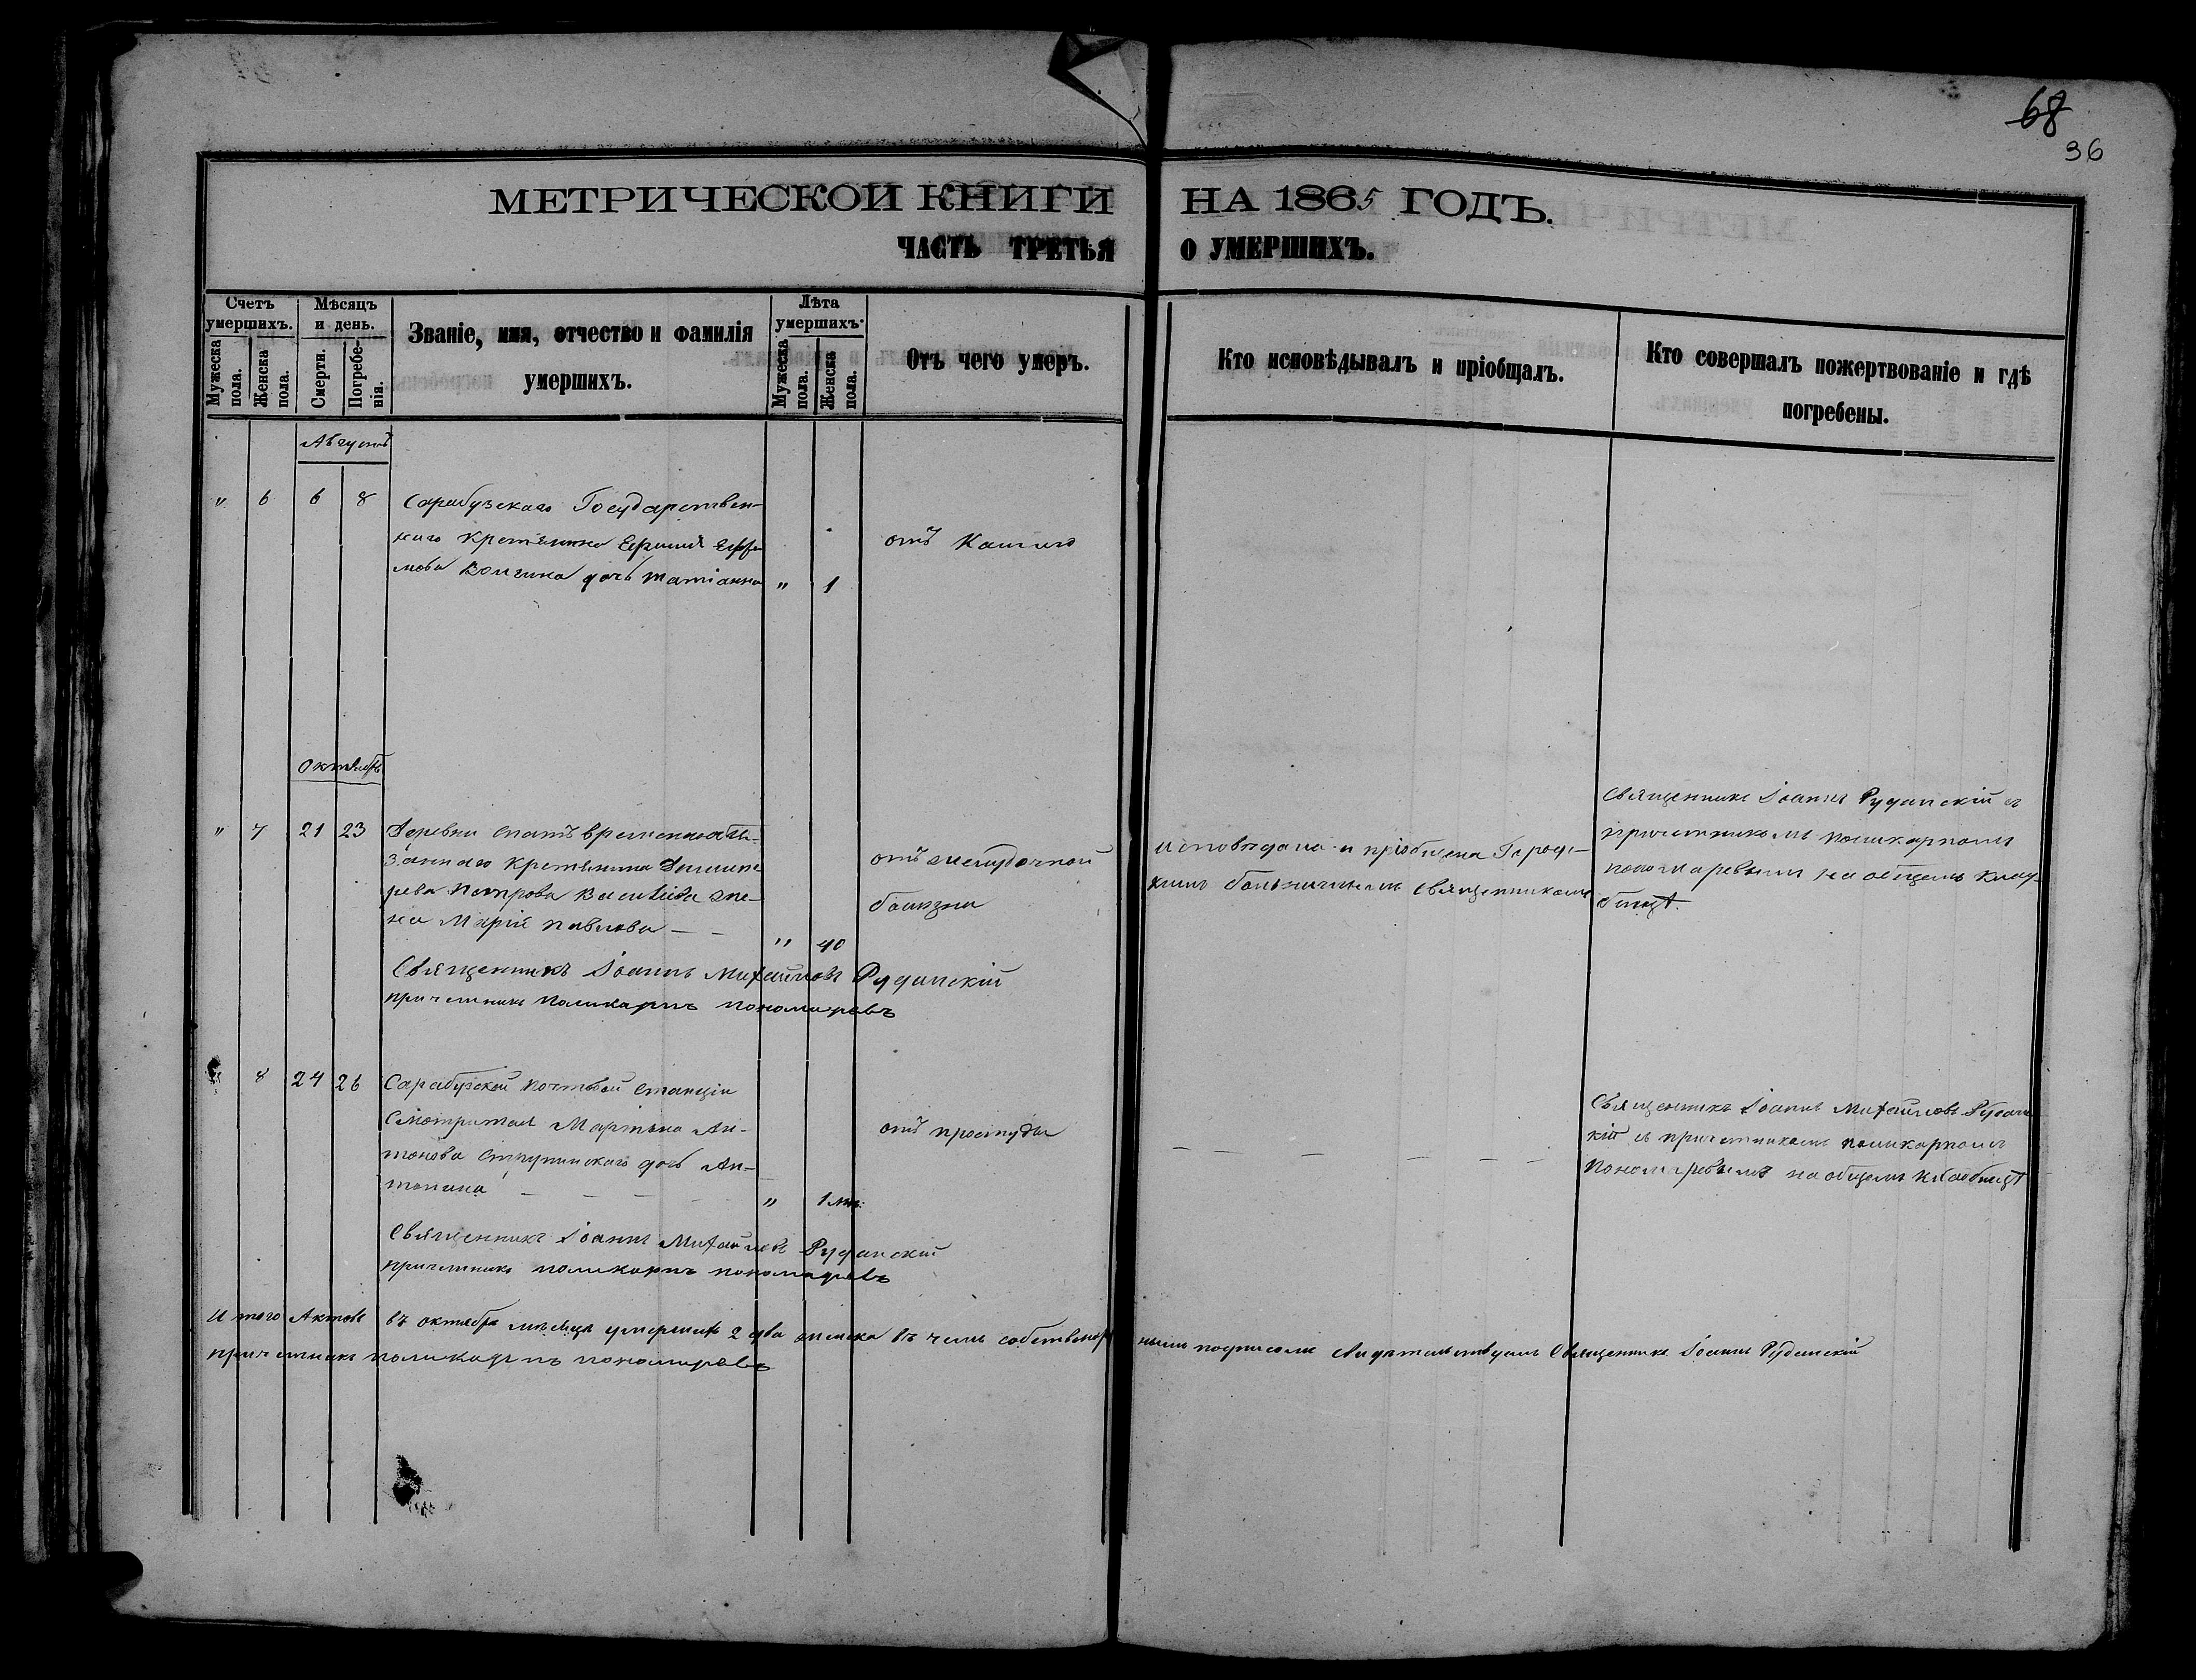 68
36
МЕТРИЧЕСКОЙ КНИГИ НА 1865 ГОДЪ.
ЧАСТЬ ТРЕТЬЯ О УМЕРШИХЪ.
Счетъ умершихъ.
Мужеска пола.
Женска пола.
Мѣсяцъ и день.
Смерти.
Погребенія.
Званіе, имя, отчество и фамилія
умершихъ.
Лѣта умершихъ.
Мужеска пола.
Женска пола.
Отъ чего умеръ.
Кто исповѣдывалъ и пріобщалъ.
Кто совершалъ пожертвованіе и гдѣ
погребены.
Августъ
" 6 6 8 Сарабузскаго Государствен-
наго крестьянина
дочь Татіанна " 1
отъ Кашлю
октябрь
" 7 21 23 Деревни Спатъ временнообя-
заннаго крестьянина
Петрова жe-
на Марія Павлова — — " 40
отъ желудочной
болѣзни
исповѣдана и пріобщена
больничнымъ священникомъ
Священникъ Іоаннъ Руданскій съ
причетникомъ Поликарпомъ
Пономаревымъ на общемъ клад-
бищѣ.
Священникъ Іоаннъ Михайловъ Руданскій
причетникъ Поликарпъ Пономаревъ
" 8 24 26 Сарабузской почтовой станціи
Смотрителя Мартына Ан-
тонова дочь Ан-
тонина — — — — " 1 мѣ:
отъ простуды
— — — — — —
Священникъ Іоаннъ Михайловъ Рудан
кій съ причетникомъ Поликарпомъ
Пономаревымъ на общемъ кладбищѣ
Священникъ Іоаннъ Михайловъ Руданскій
причетникъ Поликарпъ Пономаревъ
Итого Актовъ въ октябрѣ мѣсяцѣ умершихъ 2 два женска въ чемъ собственноруч
нымъ подписомъ свидѣтельствуемъ Священникъ Іоаннъ Руданскій
причетникъ Поликарпъ Пономаревъ